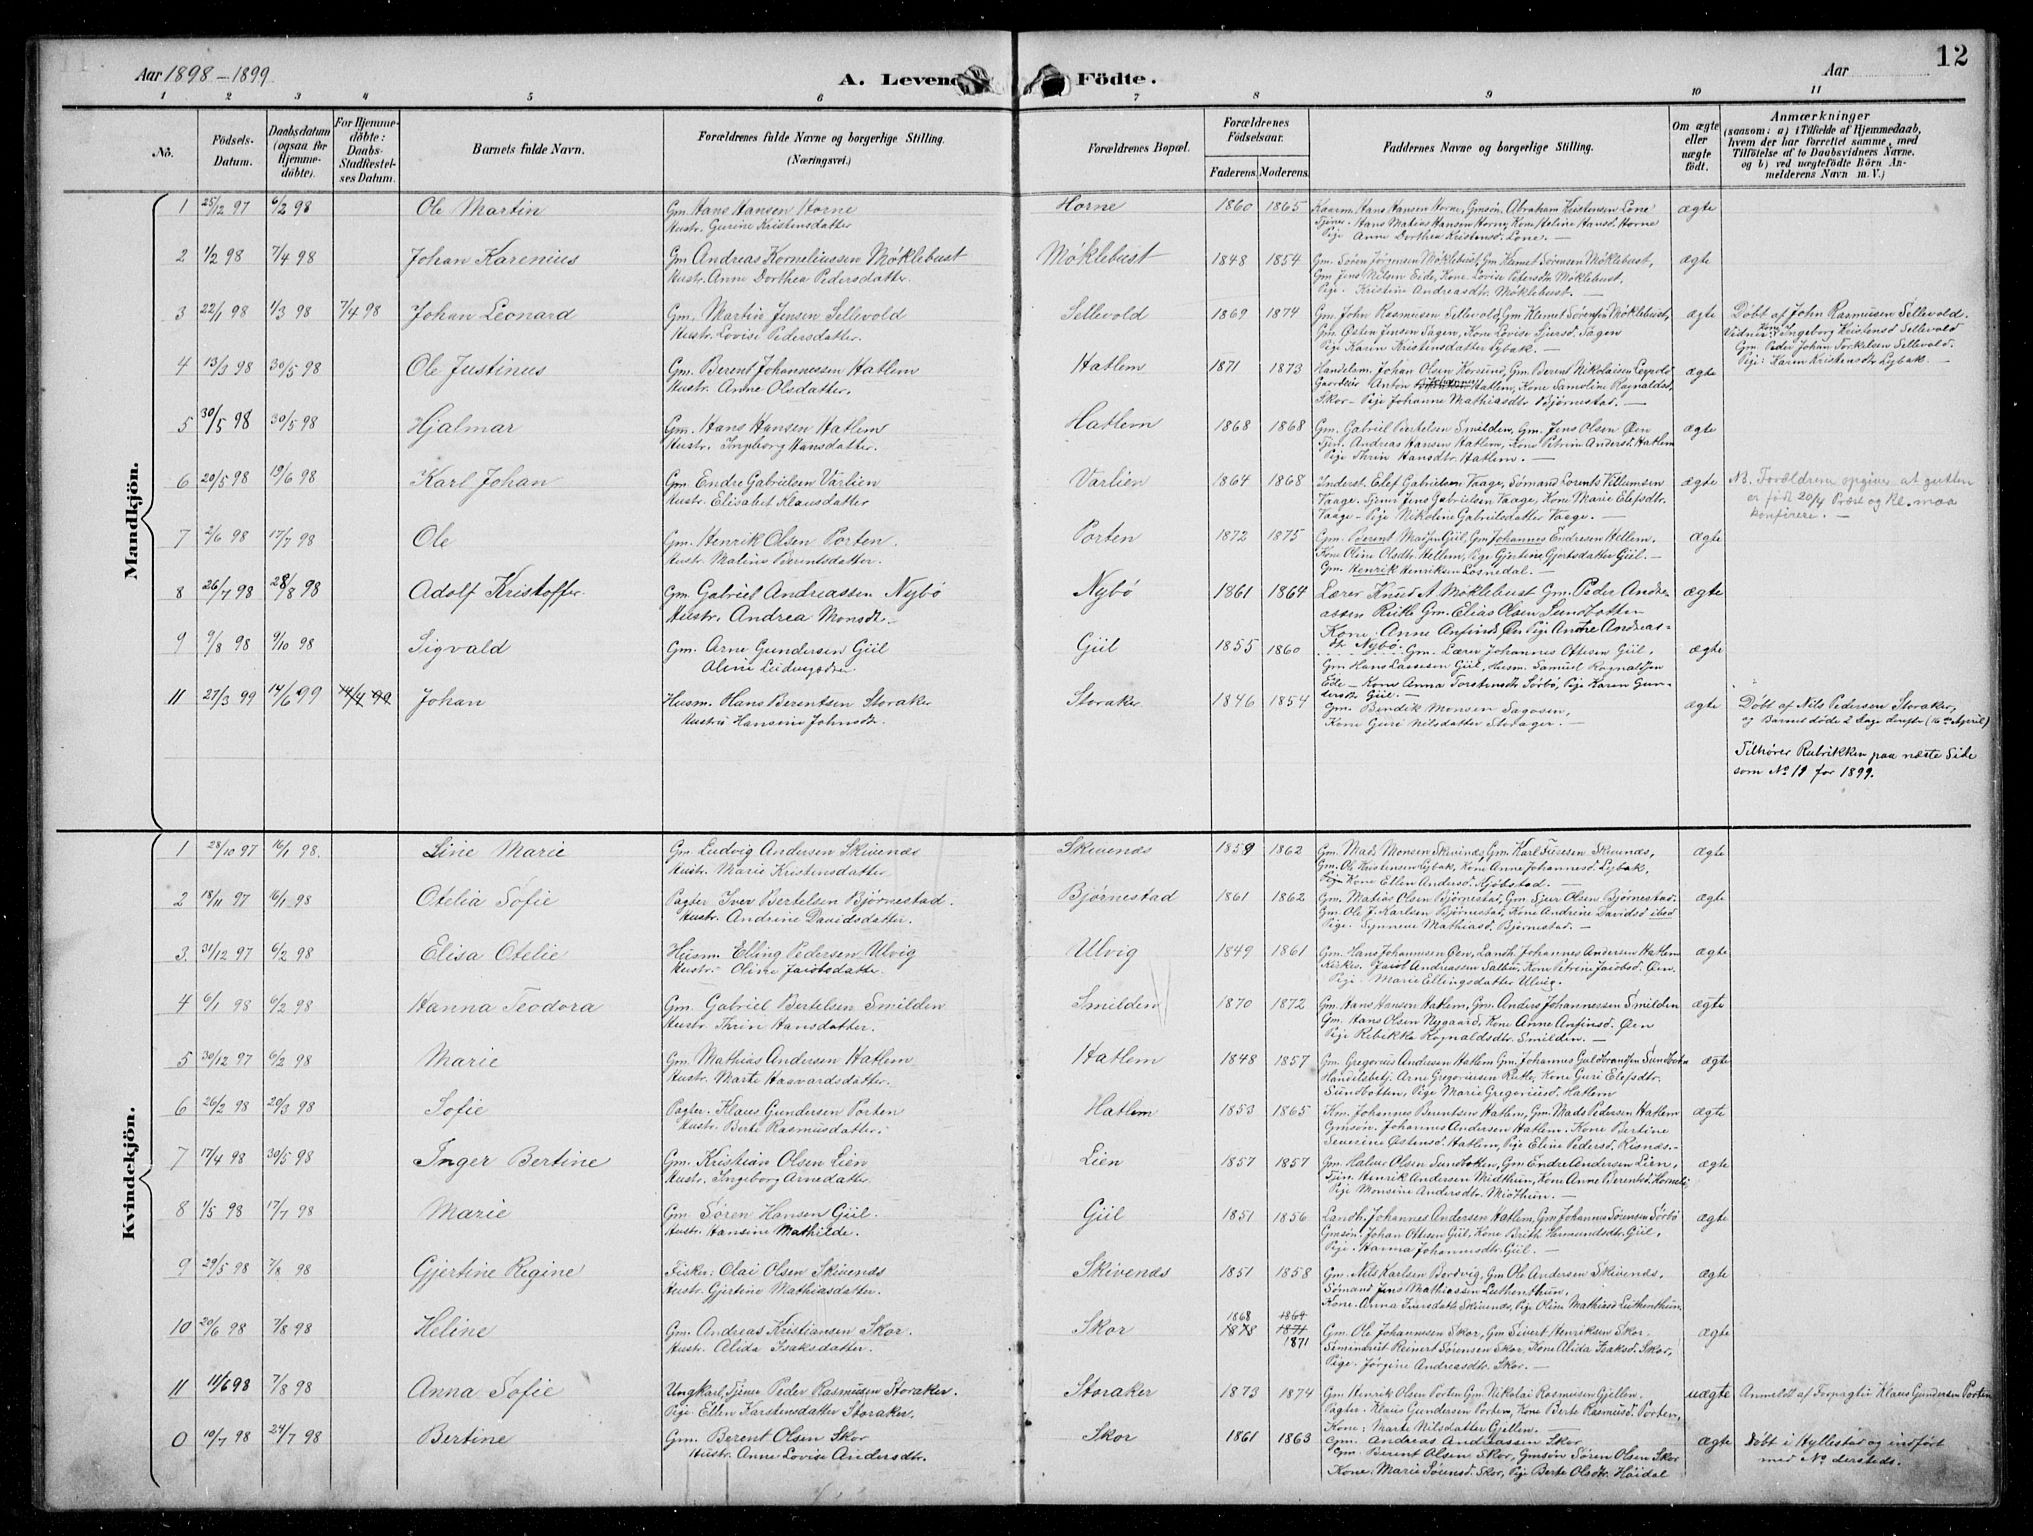 Aar 1898-1899
A. Levende Födte.
Aar
12
1 2 3 4 5 6 7 8 9 10 11
Nö.
Födsels-Datum.
Daabsdatum (ogsaa for Hjemmedöbte).
For Hjemmedöbte: Daabs-Stadfestelses Datum.
Barnets fulde Navn.
Forældrenes fulde Navne og borgerlige Stilling. (Næringsvei.)
Forældrenes Bopæl.
Forældrenes Födselsaar.
Faderens. Moderens.
Faddernes Navne og borgerlige Stilling.
Om ægte eller uægte födt.
Anmærkninger
(saasom: a) i Tilfælde af Hjemmedaab, hvem der har forrettet samme, med Tilföielse af to Daabsvidners Navne, og b) ved uægtefödte Börn Anmelderens Navn m. V.)
Mandkjön.
1 25/12 97 6/2 98 Ole Martin Gm. Hans Hansen Horne Horne 1860 1865 Kaarm. Hans Hansen Horne, Gmsøn. Abraham Kristensen Lone ægte
Hustr. Gurine Kristensdatter Tjener. Hans Matias Hansen Horne, Kone Heline Hansd. Horne
Pige Anne Dorthea Kristensd. Lone. —
2 1/2 98 7/4 98 Johan Karenius Gm Andreas Korneliussen Møklebust Møklebust 1848 1854 Gm. Søren Jørgensen Møklebust, Gm Klemet Sørensen Møklebust, ægte
Hustr. Anne Dorthea Pedersdatter. Gm Jens Nilsen Eide, Kone Lovise Petersdtr Møklebust,
Pige Kristine Andreasdtr. Møklebust. —
3 22/1 98 1/3 98 7/4 98 Johan Leonard Gm. Martin Jensen Sellevold Sellevold 1869 1874 Gm. John Rasmusen Sellevold, Gm Klemet Sørensen Møklebust, ægte Døbt af John Rasmusen Sellevold.
Hustr. Lovise Pedersdatter. Gm. Østen Jensen Sagen, Kone Lovise Sjursd. Sagen Vidner: Kone Ingeborg Kristensd Sellevold
Pige Karen Kristensdatter Lybak. — Gm. Peder Johan Torkelsen Sellevold.
Pige: Karen Kristensdtr Lybak. —
4 13/3 98 30/5 98 Ole Justinus Gm. Berent Johannessen Hatlem Hatlem 1871 1873 Handelsm. Johan Olsen Korsund, Gm. Berent Nikolaisen Leivold ægte
Hustr. Anne Olsdatter. Anton Johannes Hatlem, Kone Samoline Ragnaldsd.
Skor - Pige Johanne Mathiasdtr Bjørnestad. —
5 30/5 98 30/5 98 Hjalmar Gm. Hans Hansen Hatlem Hatlem 1868 1868 Gm. Gabriel Bertelsen Smilden, Gm. Jens Olsen Øen ægte
Hustr. Ingeborg Hansdatter. Tjen. Andreas Hansen Hatlem, Kone Petrine Andersd. Hatlem
Pige Thrin Hansdtr. Hatlem. —
6 20/5 98 19/6 98 Karl Johan Gm. Endre Gabrielsen Varlien Varlien 1864 1868 Inderst. Elef Gabrielsen Vaage, Sømand Lorents Villumsen ægte NB. Forældrene opgiver at gutten
Hustr. Elisabet Klausdatter Vaage. Tjener Jens Gabrielsen Vaage, Kone Marie Elefsdtr. er født 20/4 Præst og Kl. maa
Vaage - Pige Nikoline Gabrielsdatter Vaage. — konferere. —
7 2/6 98 17/7 98 Ole Gm. Henrik Olsen Porten. Porten 1872 1875 Gm. Berent Madsen Giil, Gm Johannes Endresen Hellem, ægte
Hustr. Maline Berentsdatter. Kone Oline Olsdtr. Hellem, Pige Gjertine Gjertsdatter Giil. —
Gm. Henrik Henriksen Losnedal. —
8 26/7 98 28/8 98 Adolf Kristoffer. Gm. Gabriel Andreassen Nybø Nybø 1861 1864 Lærer Knud A. Møklebust Gm. Peder Andre- ægte
Hustr. Andrea Monsdtr. assen Rutle Gm. Elias Olsen Sundbotten
Kone: Anne Anfinsd. Øen Pige Andre Andreas-
9 9/8 98 9/10 98 Sigvald Gm. Arne Gundersen Giil Giil 1855 1860 dtr Nybø. Gm. Lærer Johannes Ottesen Giil, ægte
Aline Ludvigsdtr. Gm Hans Lassesen Giil, Husm. Samuel Ragnaldsen
Eide - Kone Anna Torstensdtr Sørbø, Pige Karen Gun-
dersdtr Giil. —
11 27/3 99 14/6 99 14/4 99 Johan Husm. Hans Berentsen Storaker Storaker 1846 1854 Gm. Bendik Monsen Sagosen, ægte Døbt af Nils Pedersen Storaker,
Hustru Hansine Johnsdtr. Kone Guri Nilsdatter Storager. — og Barnet døde 2 Dage derefter (16de April)
Tilhører Rubrikken paa næste Side
som No 19 for 1899.
Kvindekjön.
1 28/10 97 16/1 98. Line Marie Gm. Ludvig Andersen Skivenes Skivenes 1859 1862 Gm. Mads Monsen Skivenes, Gm. Karl Iversen Skivenes, ægte
Hustr. Marie Kristensdatter. Gm. Ole Kristensen Lybak, Kone Anne Johannesd. Lybak,
Pige Kone Ellen Andersd. Kjøbstad. —
2 18/11 97 16/1 98 Otelia Sofie Pagter Iver Bertelsen Bjørnestad. Bjørnestad 1861 1862 Gm. Matias Olsen Bjørnestad, Gm Sjur Olsen Bjørnestad. ægte
Hustr. Andrine Davidsdatter. Gm. Ole J. Karlsen Bjørnestad, Kone Andrine Davidsd ibed
Pige. Synneve Mathiasd. Bjørnestad. —
3. 31/12 97 6/2 98 Elisa Otelie Husm Elling Pedersen Ulvig Ulvig 1849 1861 Gm. Hans Johannesen Øen, Landh. Johannes Andersen Hatlem ægte
Hustr. Oline Jacobsdatter. Kirkes. Jacob Andreassen Salbu, Kone Petrine Jacobsd. Øen
Pige. Marie Ellingsdatter Ulvig.
4 6/1 98 6/2 98 Hanna Teodora Gm. Gabriel Bertelsen Smilden Smilden 1870 1872 Gm. Hans Hansen Hatlem, Gm. Anders Johannessen Smilden ægte
Hustr. Thrin Hansdatter. Gm. Hans Olsen Nygaard, Kone Anne Anfinsd. Øen
Pige Rebikka Ragnaldsdtr. Smilden. —
5 30/12 97 6/2 98 Marie Gm. Mathias Andersen Hatlem Hatlem 1848 1857 Gm. Gregorius Andersen Hatlem, Gm. Johannes Guldbrandsen Sundbotn ægte
Hustr. Marte Haavardsdatter. Handelsbetj. Arne Gregoriussen Rutle, Kone Guri Elefsdtr.
Sundbotten, Pige Marie Gregoriusd. Hatlem
6 26/2 98 20/3 98 Sofie Pagter. Klaus Gundersen Porten Hatlem 1853 1865 Km. Johannes Berentsen Hatlem, Gm. Mads Pedersen Hatlem ægte
Hustr. Berte Rasmusdatter. Gmsøn. Johannes Andersen Hatlem. Kone Bertine
Severine Østensd. Hatlem, Pige Eline Pedersd. Risnæs. -
7 17/4 98 30/5 98 Inger Bertine Gm. Kristian Olsen Lien Lien 1857 1857 Gm. Halvor Olsen Sundboten, Gm Endre Andersen Lien, ægte
Hustr. Ingeborg Arnedatter. Tjen. Henrik Andersen Midthun, Kone Anne Berentsd.
Pige Monsine Andersdtr. Midthun. —
8 1/5 98 17/7 98 Marie Gm Søren Hansen Giil. Giil 1851 1856 Landh. Johannes Andersen Hatlem, Gm Johannes Sørensen Sørbø ægte
Hustr. Hansine Mathilde. Gmsøn. Johan Ottesen Giil, Kone Brith Hermundsdtr. Giil,
Pige. Hanna Johannesdtr. Giil. —
9 29/5 98 7/8 98 Gjertine Regine Fisker. Olai Olsen Skivenes Skivenes 1851 1858 Gm. Nils Karlsen Bordvig, Gm Ole Andersen Skivenes, ægte
Hustr. Gjertine Mathiasdatter. Sømand Jens Mathiassen Luthenthun,
Kone. Anna Iversdatr Skivenes, Pige Oline Mathiasd Luthenthun.
10 20/6 98 7/8 98 Heline Gm. Andreas Kristiansen Skor. Skor 1868 1878 1868 1871 1871 Gm. Ole Johannesen Skor, Gm Sivert Henriksen Skor. ægte
Hustr. Alida Isaksdatter. Seminarist Reinert Sørensen Skor, Kone Alida Isaksd. Skor,
Pige. Jørgine Andreasdtr. Skor. —
11 14/6 98 7/8 98 Anna Sofie Ungkarl, Tjener Peder Rasmusen Storaker. Storaker 1873 1874 Gm Henrik Olsen Porten Gm. Nikolai Rasmusen Gjellen. uægte Anmeldt af Forpagter Klaus Gundersen Porten
Pige Ellen Karstensdatter Storaker. Pagter. Klaus Gundersen Porten, Kone Berte Rasmusd. Porten,
Kone: Marte Nilsdatter Gjellen. —
0 10/7 98 24/7 98 Bertine Gm. Berent Olsen Skor Skor 1861 1863 Gm. Andreas Andreassen Skor ægte Døbt i Hyllestad og indført
Hustr. Anne Lovise Andersdtr. Gm. Berent Olsen Skor, Gmsøn Søren Olsen Skor med No dersteds.
Kone. Marie Sørensd. Skor, Pige Berte Olsdtr. Höidal